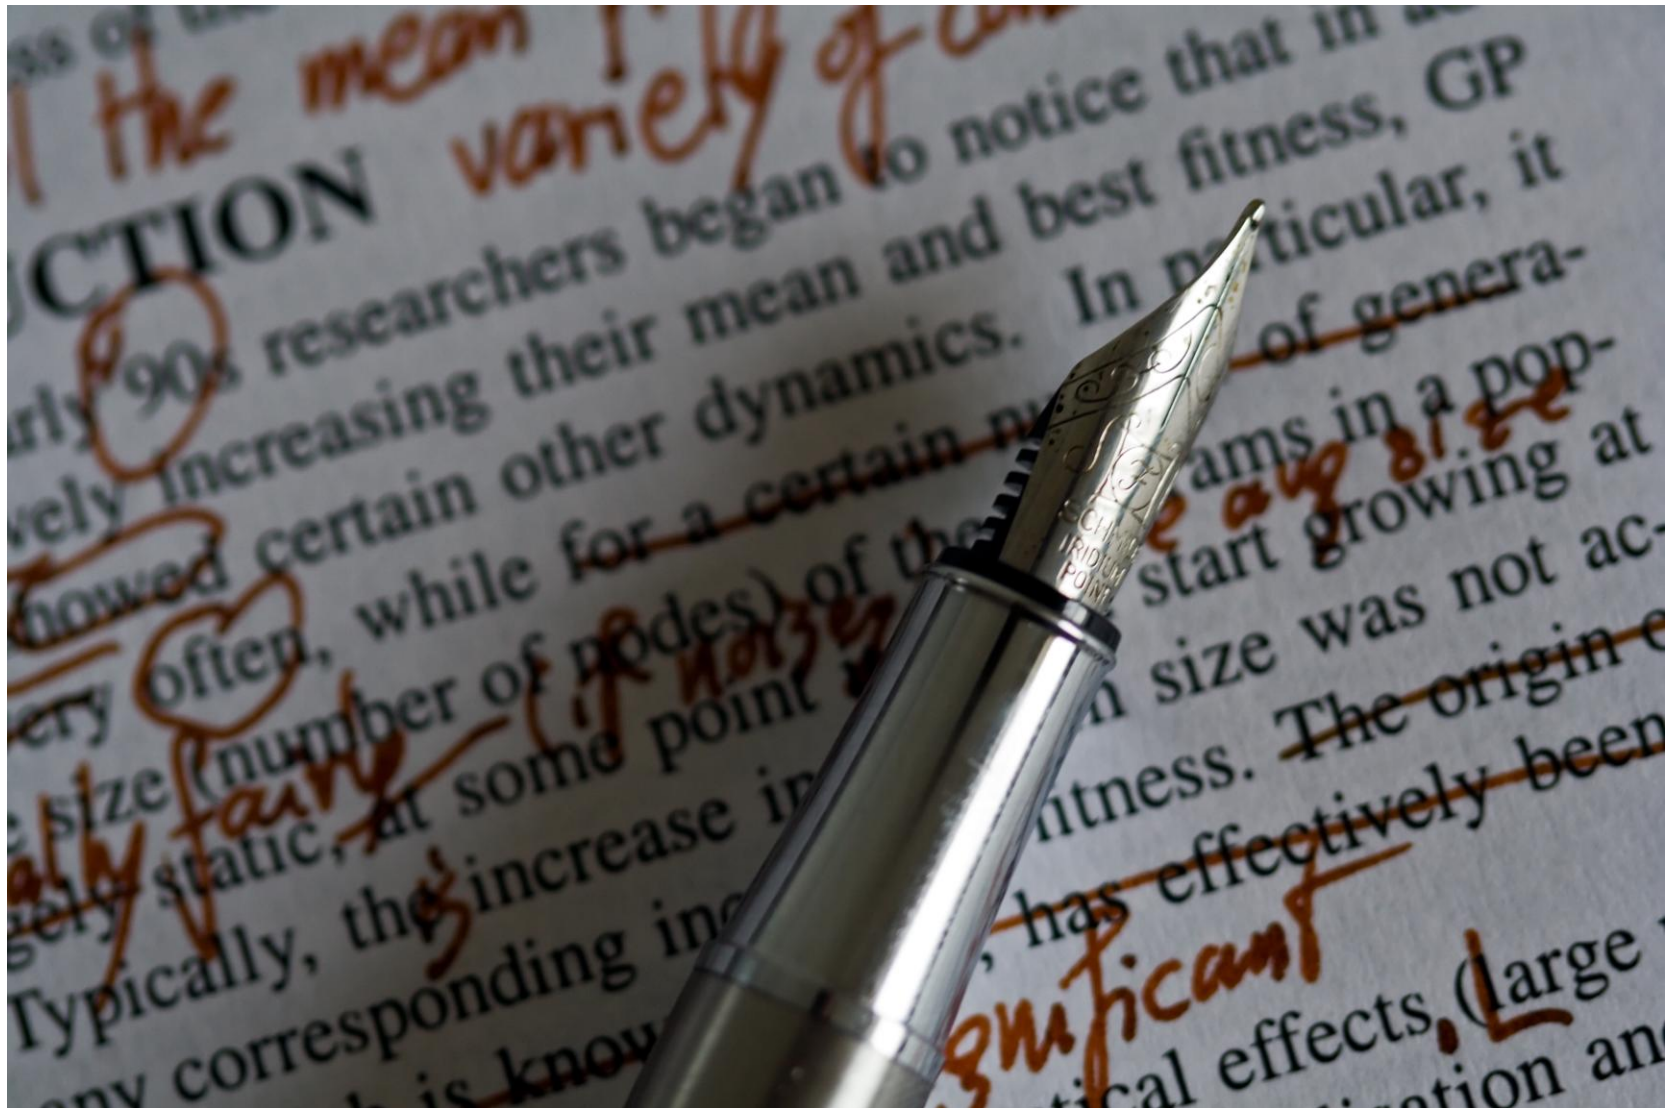 ss of the
the mean
variety of
CTION
arly 90s researchers began to notice that in
vely increasing their mean and best fitness, GP
howed certain other dynamics. In particular, it
ery often, while for a certain nu of genera-
e size (number of nodes) of the ams in a pop-
(if not zer e avg size
ally fairly
gely static, at some point start growing at
Typically, the increase in n size was not ac-
s
any corresponding inc itness. The origin o
is know , has effectively been
significant
tical effects, (large
L
isation and
SCHM
IRIDIUM
POINT